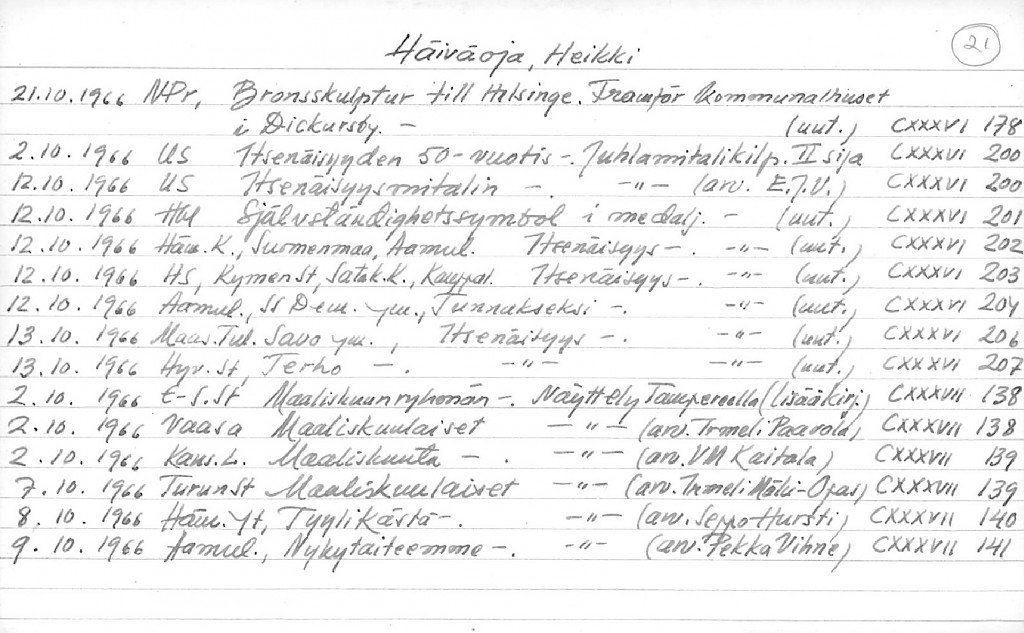 21
Häiväoja, Heikki
21.10.1966 NPr, Bronsskulptur till Helsinge. Framför Kommunalhuset
i Dickursby. — (uut.) CXXXVI 178
2.10.1966 US Itsenäisyyden 50-vuotis-. Juhlamitalikilp. II sija CXXXVI 200
12.10.1966 US Itsenäisyysmitalin —. —"— (arv. E.J.V.) CXXXVI 200
12.10.1966 Hbl Självständighetssymbol i medalj. — (uut.) CXXXVI 201
12.10.1966 Häm.K., Suomenmaa, Aamul. Itsenäisyys —. —"— (uut.) CXXXVI 202
12.10.1966 HS, KymenSt, Satak.K., Kauppal. Itsenäisyys —. —"— (uut.) CXXXVI 203
12.10.1966 Aamul., SsDem. ym., Tunnukseksi —. —"— (uut.) CXXXVI 204
13.10.1966 Maas.Tul. Savo ym., Itsenäisyys —. —"— (uut.) CXXXVI 206
13.10.1966 Hyv.St, Terho —. —"— —"— (uut.) CXXXVI 207
2.10.1966 E-S.St Maaliskuunryhmän —. Näyttely Tampereella (lisää kirj.) CXXXVII 138
2.10.1966 Vaasa Maaliskuulaiset —"— (arv. Irmeli Paavola) CXXXVII 138
2.10.1966 Kans.L. Maaliskuuta —. —"— (arv. VM Kaitala) CXXXVII 139
7.10.1966 TurunSt Maaliskuulaiset —"— (arv. Irmeli Mäki-Opas) CXXXVII 139
8.10.1966 Häm.Yt, Tyylikästä —. —"— (arv. Seppo Hursti) CXXXVII 140
9.10.1966 Aamul., Nykytaiteemme —. —"— (arv. Pekka Vihne) CXXXVII 141